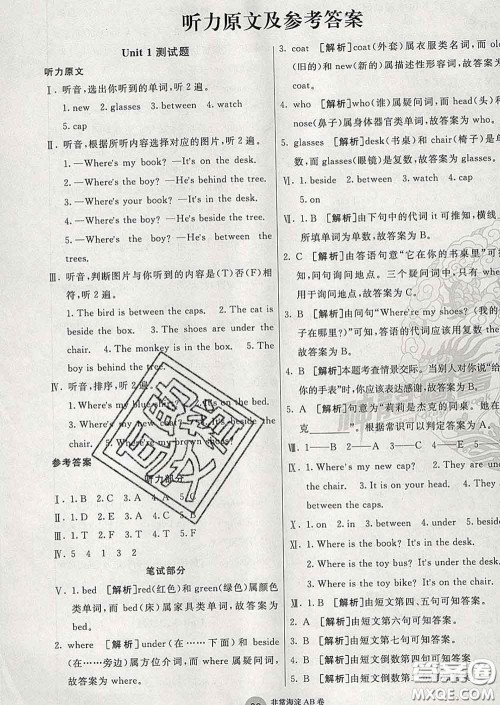 听力原文及参考答案
Unit 1 测试题
听力原文
Ⅰ. 听音，选出你听到的单词，听 2 遍。
1. new 2. glasses 3. between 4. watch
5. cap
Ⅱ. 根据所听内容选择对应的图片，听 2 遍。
1. —Where's my book? —It's on the desk.
2. —Where's the boy? —He's behind the tree.
3. —Where's your book? —It's in the desk.
4. —Where's the boy? —He's beside the tree.
5. —Where's the boy? —He's between the
trees.
Ⅲ. 听音，判断图片与你听到的是否(T)否(F)相
符，听 2 遍。
1. The bird is between the caps. 2. The cat is
beside the box. 3. The shoes are under the
chair. 4. The monkey is in the box. 5. The
boy is behind the tree.
Ⅳ. 听音，排序，听 2 遍。
1. Where's my blue 2. It's on the bed.
3. Where's my cap? 4. It's under the
chair. 5. Where're my brown shoes?
参考答案
听力部分
Ⅰ. 1. B 2. C 3. A 4. A 5. C
Ⅱ. 1. D 2. E 3. A 4. C 5. B
Ⅲ. 1. T 2. F 3. T 4. T 5. F
Ⅳ. 5 4 1 3 2
笔试部分
Ⅴ. 1. bed [解析]red(红色)和 green(绿色)属颜
色类单词，而 bed(床)属家具类单词，故答案为
bed。
2. where [解析]under(在……下面)和 beside
(在……旁边)属方位词，而 where 属疑问词，
故答案为 where。
3. coat [解析]coat(外套)属衣服类名词，而 old
(旧的)和 new(新的)属描述性形容词，故答案
为 coat。
4. who [解析]who(谁)属疑问词，而 head(头)和
nose(鼻子)属身体器官类单词，故答案为 who。
5. glasses [解析]desk(书桌)和 chair(椅子)是单
数，而 glasses(眼镜)是复数，故答案为 glasses。
Ⅵ. 1. beside 2. between 3. watch 4. cap
5. on
Ⅶ. 1. B [解析]由下句中的代词 it 可推知，横线上
所填单词为单数，故答案为 B。
2. C [解析]由答语句意“它在你的书桌里”可
知，问句询问地点。三个疑问词中，where
用于询问地点，故答案为 C。
3. B [解析]由问句“Where're my shoes? (我的鞋
子在哪里?)”可知，答语的代词应该用复数 they，
故答案为 B。
4. B [解析]本题考查情景交际。当别人对你说“给
你的手表”时，你应该表达感谢，故答案为 B。
5. A [解析]句意为“莉莉是杰克的同桌。她在
克________。”根据常识可以判定答案为 A。
Ⅷ. 1. Where is my new cap? 2. They're under
the chair. 3. Where are my shoes? 4. It's on
the chair. 5. It's between the beds.
Ⅸ. 1. in 2. on 3. between 4. under 5. beside
Ⅹ. 1. B 2. B 3. A 4. A 5. B
Ⅺ. 1. Where is the book? It's in the desk.
2. Where is the cap? It's on the bed.
3. Where is the boy? It's behind the tree.
4. Where is the toy bus? It's under the chair.
5. Where is the toy bike? It's on the chair.
Ⅻ. 1. B [解析]由短文第四、五句可知答案。
2. B [解析]由短文第六句可知答案。
3. B [解析]由短文第七句可知答案。
4. A [解析]由短文倒数第四句可知答案。
5. A [解析]由短文倒数第二句可知答案。
非常海淀 AB 卷
答案圈
MXQE.COM